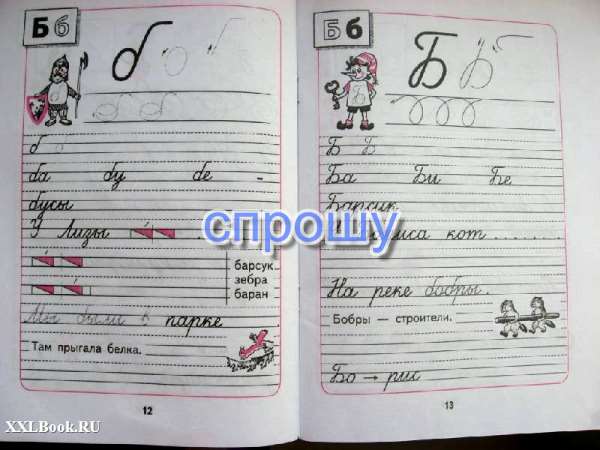 Б б
б
б
ба бу бе -
бусы
У Лизы
барсук
зебра
баран
Мы были в парке
Там прыгала белка.
12
Б б
Б
Б Б
Ба Би Бе
Барсик
кот
На реке бобры.
Бобры — строители.
Бо → рис
13
спрошу
XXLBook.RU